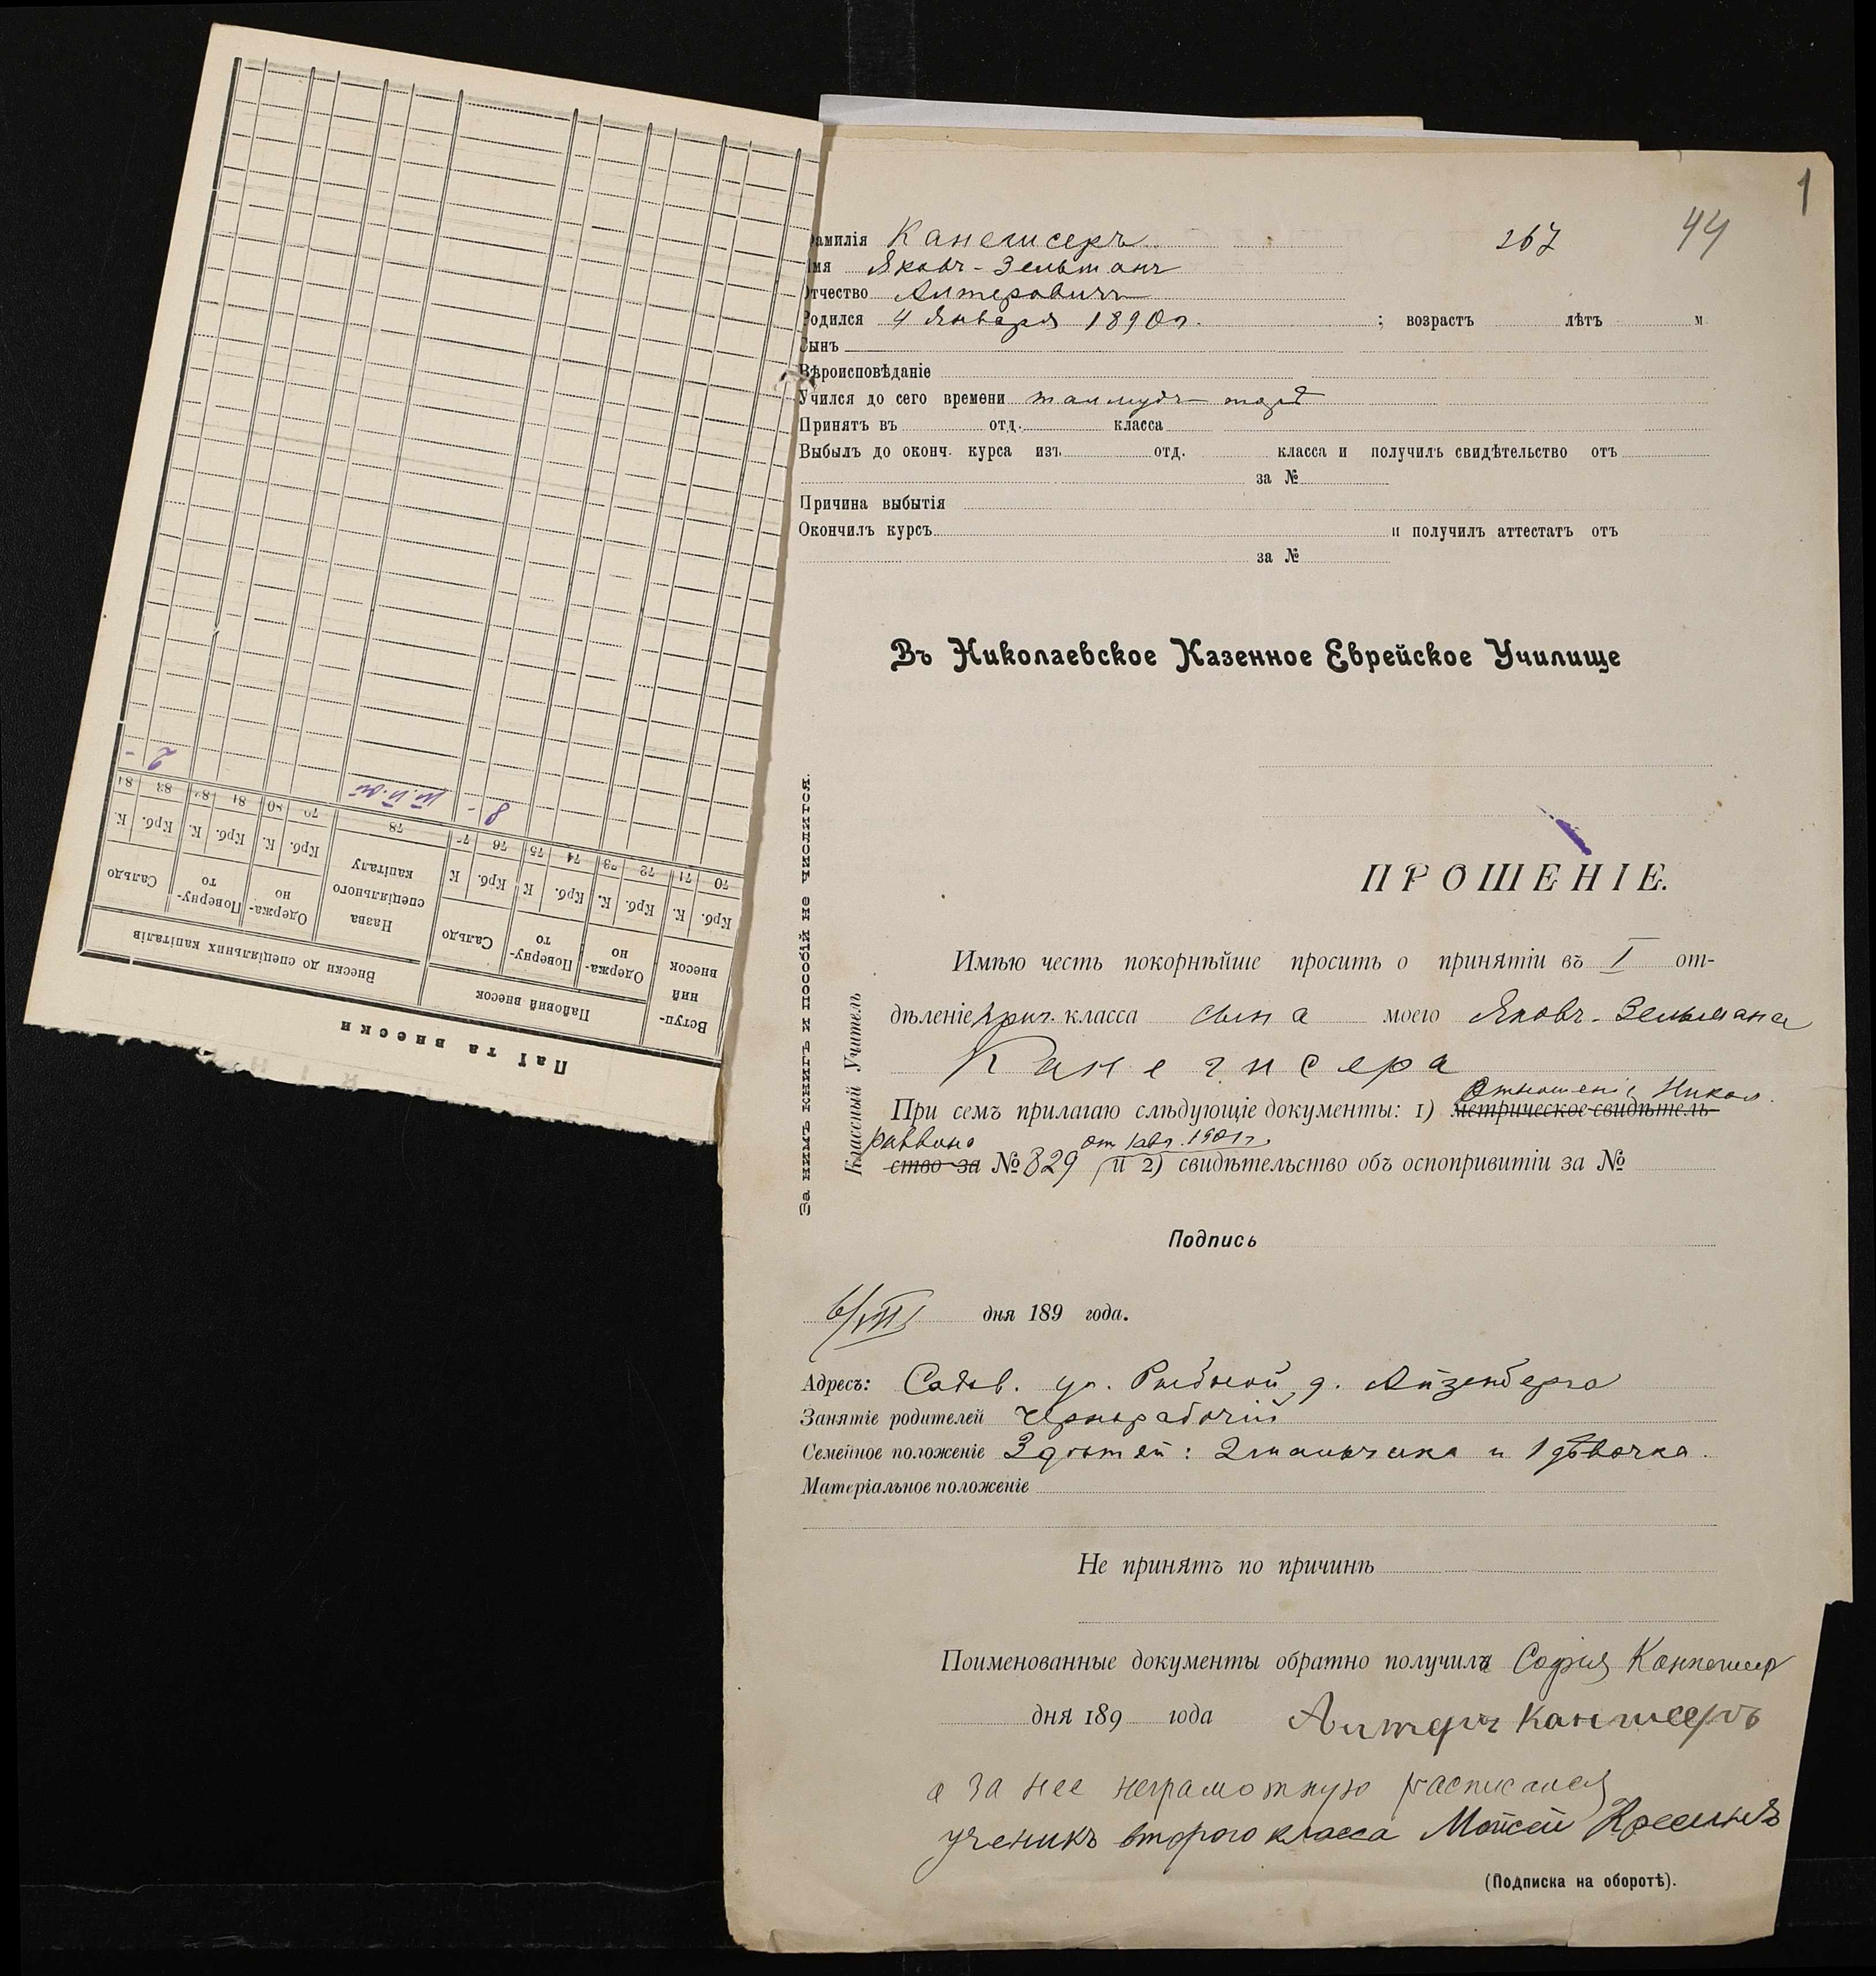 1
44
267
Фамилія Канегисеръ
Имя Яковъ-Зельманъ
Отчество Алтеровичъ
Родился 4 Января 1890 г. ; возрастъ лѣтъ м
Сынъ
Вѣроисповѣданіе
Учился до сего времени талмудъ-торѣ
Принятъ въ отд. класса
Выбылъ до оконч. курса изъ отд. класса и получилъ свидѣтельство отъ
за №
Причина выбытія
Окончилъ курсъ и получилъ аттестатъ отъ
за №
Въ Николаевское Казенное Еврейское Училище
ПРОШЕНІЕ.
Имѣю честь покорнѣйше просить о принятіи въ I от-
дѣленіе приг. класса сына моего Яковъ-Зельмана
Канегисера
Отношеніе Никол.
При семъ прилагаю слѣдующіе документы: 1) метрическое свидѣтель-
раввина от 1 авг. 1901 г.
ство за № 829 и 2) свидѣтельство объ оспопривитіи за №
Подпись
6/VIII дня 189 года.
Адресъ: Садов. уг. Рыбной, д. Айзенберга
Занятіе родителей Чернорабочій
Семейное положеніе 3 дѣтей: 2 мальчика и 1 дѣвочка.
Матеріальное положеніе
Не принятъ по причинѣ
Поименованные документы обратно получила Софія
дня 189 года Алтеръ
а за нее неграмотную расписался
ученикъ второго класса Мойсей
(Подписка на оборотѣ).
Классный Учитель
За нимъ книгъ и пособій не числится.
Паї та внески
Вступ-
ний
внесок
Пайовий внесок
Внески до спеціяльних капіталів
Одержа-
но
Поверну-
то
Сальдо
Назва
спеціяльного
капіталу
Одержа-
но
Поверну-
то
Сальдо
Крб. К. Крб. К. Крб. К Крб. К Крб. К. Крб. К. Крб. К.
70 71 72 73 74 75 76 77 78 79 80 81 82 83 84
8 - 2 -